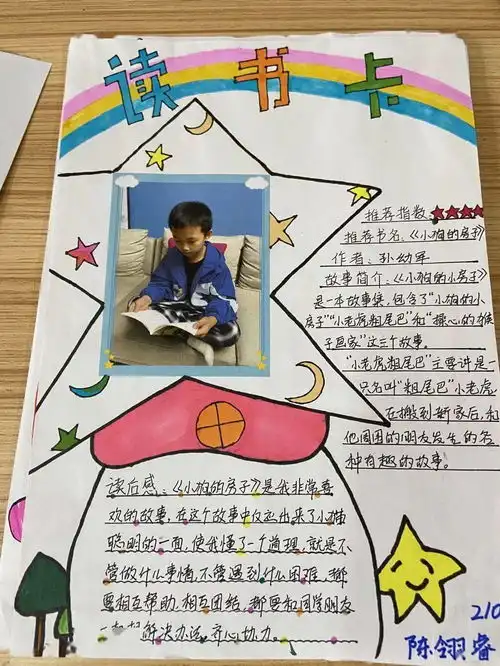 读书卡
推荐指数:
推荐书名:《小狗的房子》
作者:孙幼军
故事简介:《小狗的小房子》
是一本故事集,包含了“小狗的小
房子”“小老虎粗尾巴”和“操心的猴
子画家”这三个故事。
“小老虎粗尾巴”主要讲是
一只名叫“粗尾巴”小老虎,
在搬到新家后,和
他周围的朋友发生的各
种有趣的故事。
读后感:《小狗的房子》是我非常喜
欢的故事,在这个故事中仅仅出来了小猫
聪明的一面,使我懂了一个道理,就是不
管做什么事情,不管遇到什么困难,都
要相互帮助,相互团结,都要和同学朋友
一起想解决办法,齐心协力。
210
陈翎睿